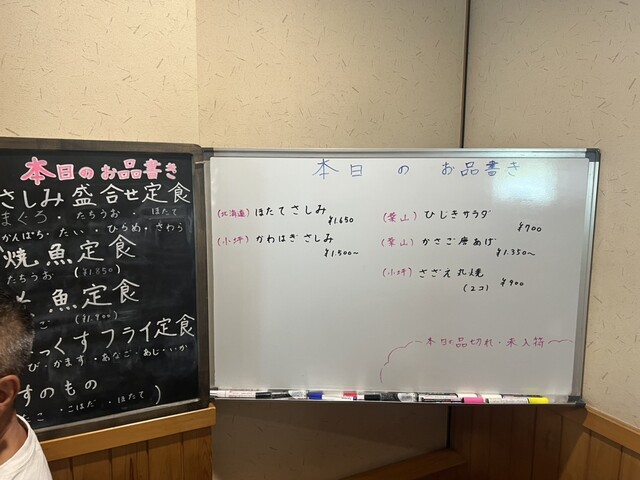 本日のお品書き
さしみ盛合せ定食
まぐろ・たちうお・ほたて
かんぱち・たい・ひらめ・さわら
焼魚定食
たちうお (¥1.850)
魚定食
ご (¥1.900)
っくすフライ定食
び・かます・あなご・あじ・いか
すのもの
たこ・こはだ・ほたて)
本日のお品書き
(北海道) ほたてさしみ
¥1.650
(小坪) かわはぎさしみ
¥1.500〜
(葉山) ひじきサラダ
¥700
(葉山) かさご唐あげ
¥1.350〜
(小坪) さざえ丸焼
(2コ) ¥900
本日品切れ・未入荷